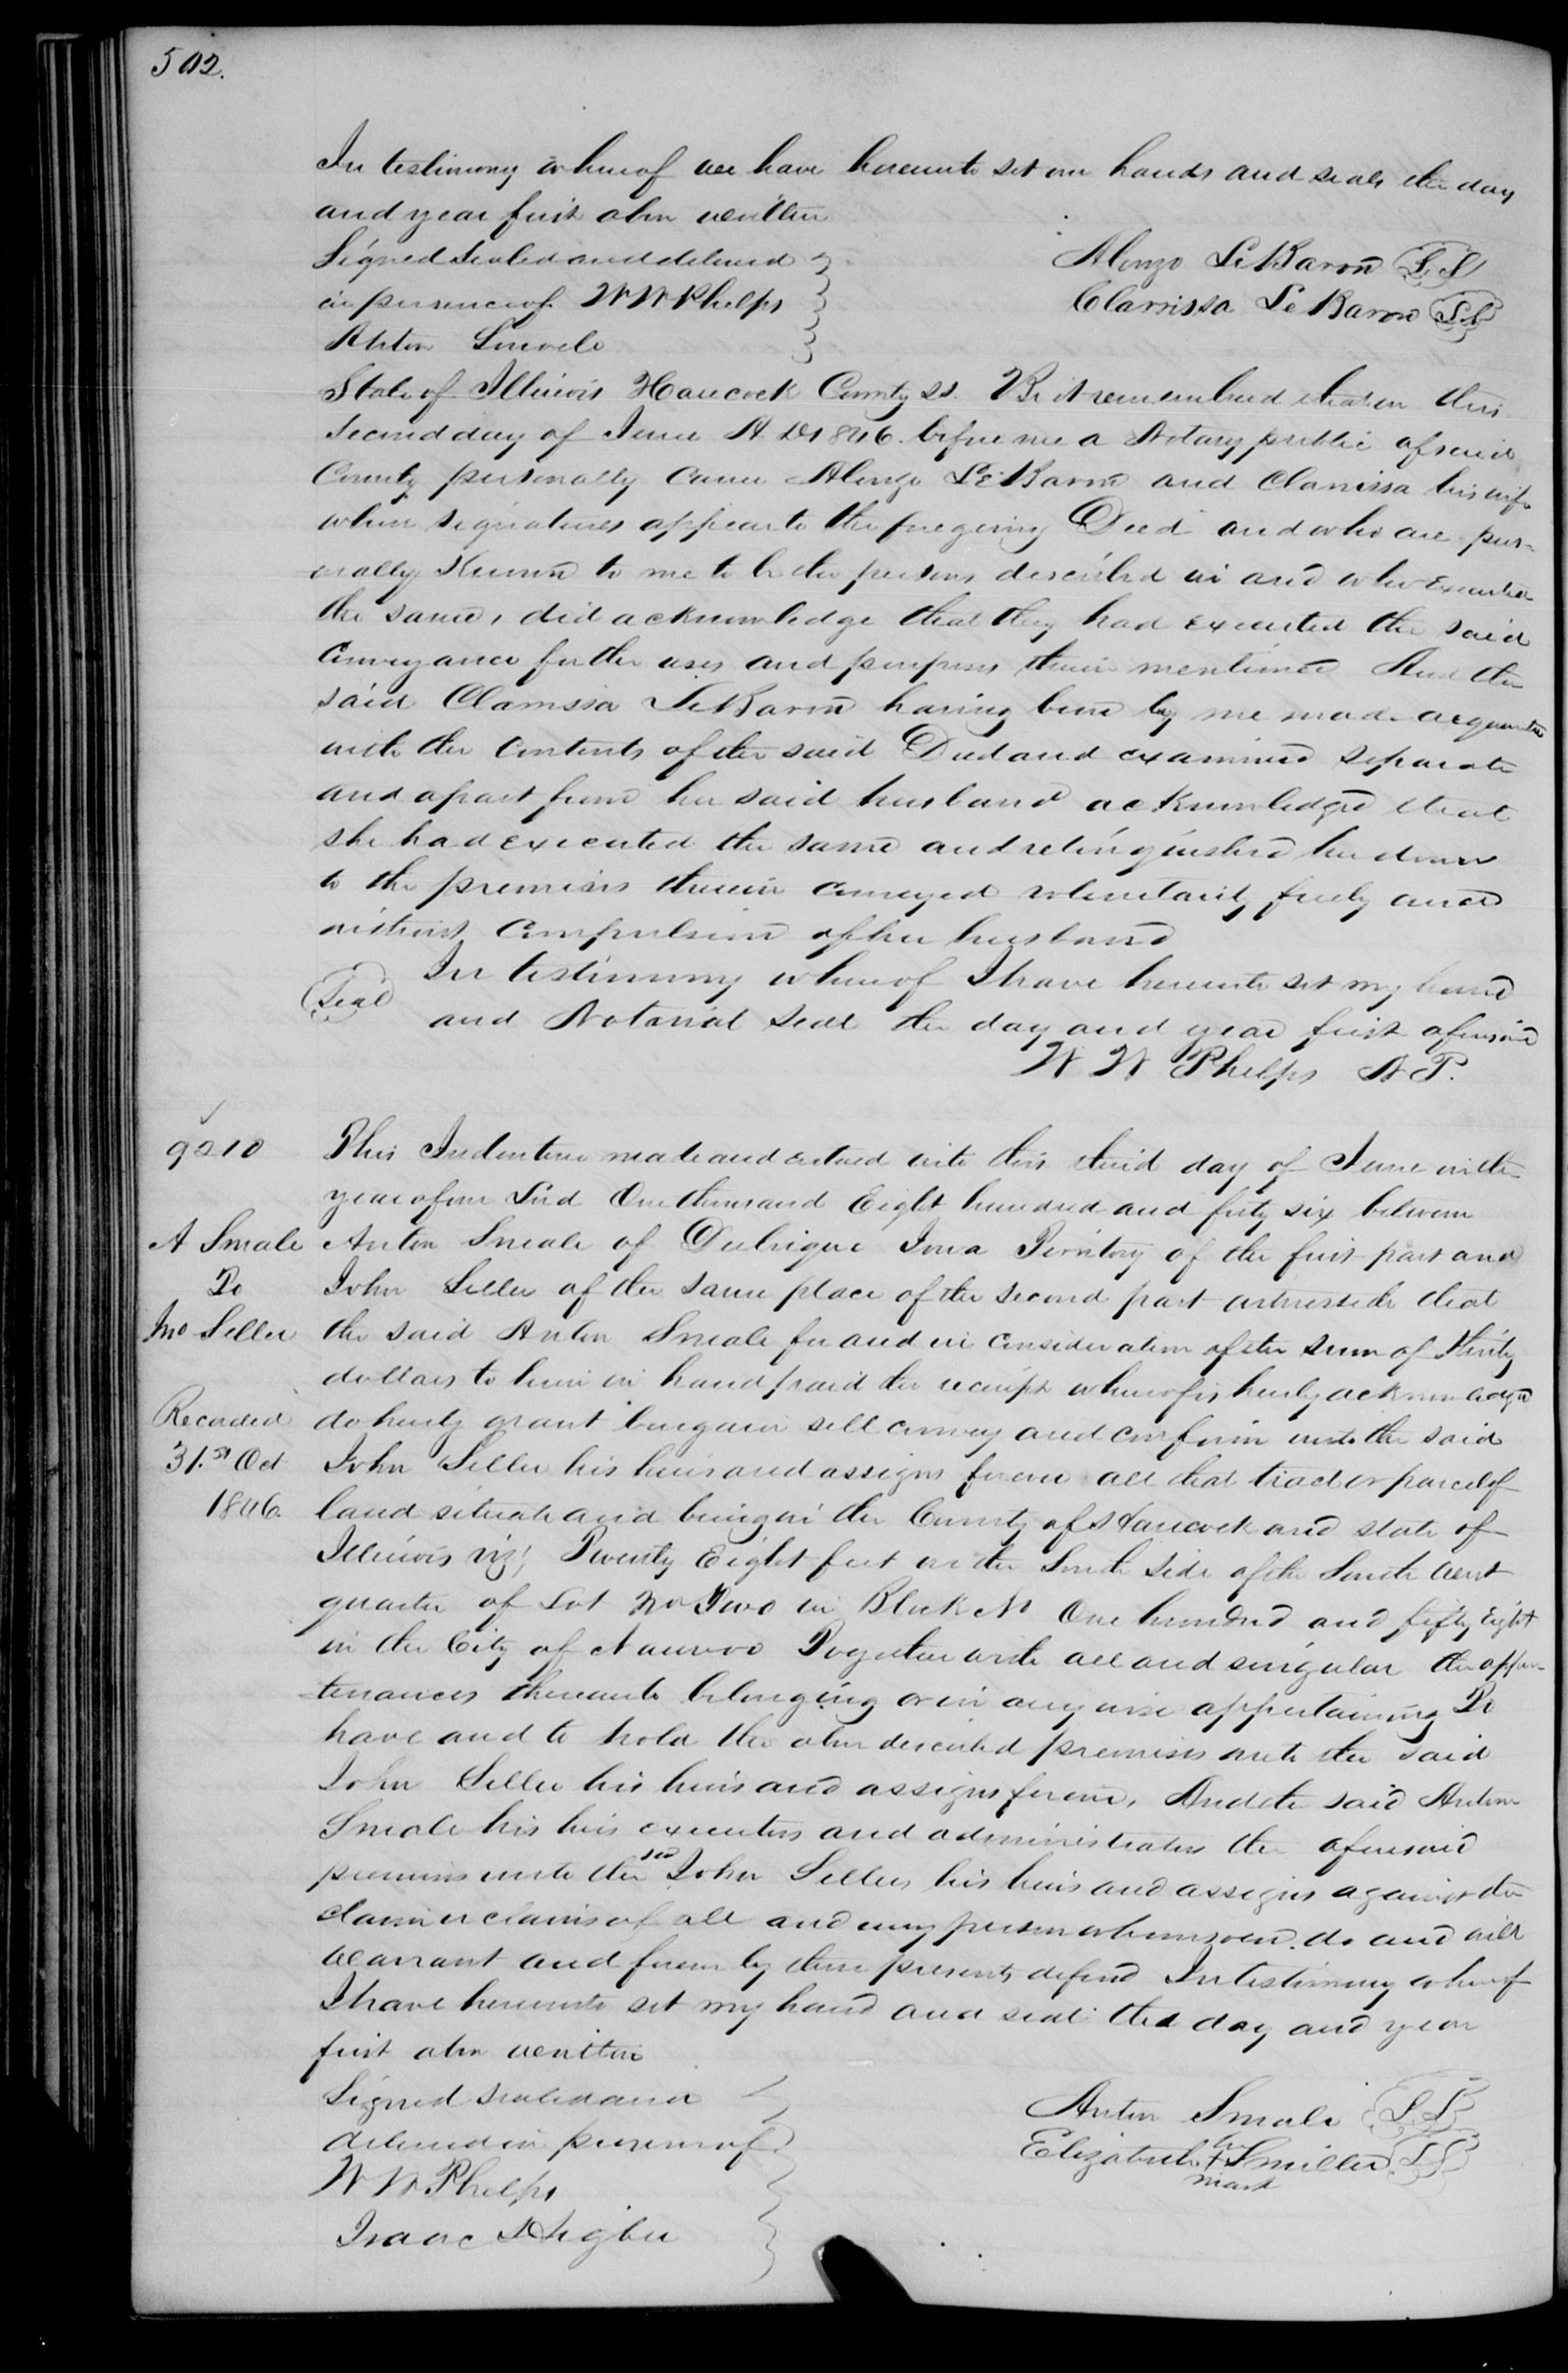 502.
In testimony whereof we have hereunto set our hands and seals the day
and year first above written
Signed Sealed and delivered
in presence of W W Phelps
Anton Smale
Alonzo LeBaron L S
Clarrissa Le Baron L S
State of Illinois Hancock County ss. Be it remembered that on this
Second day of June A D 1846. before me a Notary public of said
County personally came Alonzo LeBaron and Clarrissa his wife
whose signatures appear to the foregoing Deed and who are per-
sonally Known to me to be the persons described in and who Executed
the same, did acknowledge that they had executed the said
Conveyance for the uses and purposes therein mentioned And the
said Clarrissa LeBaron having been by me made acquainted
with the contents of the said Deed and examined separate
and apart from her said husband acknowledged that
she had executed the same and relinquished her dower
to the premises therein conveyed voluntarily freely and
without Compulsion of her husband
Seal
In testimony whereof I have hereunto set my hand
and Notarial Seal the day and year first aforesaid
W W Phelps N P.
9210
This Indenture made and entered into this third day of June in the
year of our Lord One thousand Eight hundred and forty six between
A Smale
Anton Smale of Dubuque Iowa Territory of the first part and
To
John Siller of the same place of the second part witnesseth that
Jno Siller
the said Anton Smale for and in consideration of the sum of thirty
dollars to him in hand paid the receipt whereof is hereby acknowledged
Recorded
do hereby grant bargain sell convey and confirm unto the said
31.st Oct
John Siller his heirs and assigns forever all that tract or parcel of
1846.
land situate and being in the County of Hancock and state of
Illinois viz; Twenty Eight feet on the South side of the South west
quarter of Lot No Two in Block No One hundred and fifty Eight
in the City of Nauvoo Together with all and singular the appur-
tenances thereunto belonging or in any wise appertaining To
have and to hold the above described premises unto the said
John Siller his heirs and assigns forever, And the said Anton
Smale his heirs executors and administrators the aforesaid
premises unto the sd John Siller, his heirs and assigns against the
claim or claims of all and every person whomsoever. do and will
warrant and forever by these presents defend In testimony whereof
I have hereunto set my hand and seal the day and year
first above written
Signed sealed and
delivered in presence of
W W Phelps
Isaac Higbee
Anton Smale L S
Elizabeth her + mark Smiller L S